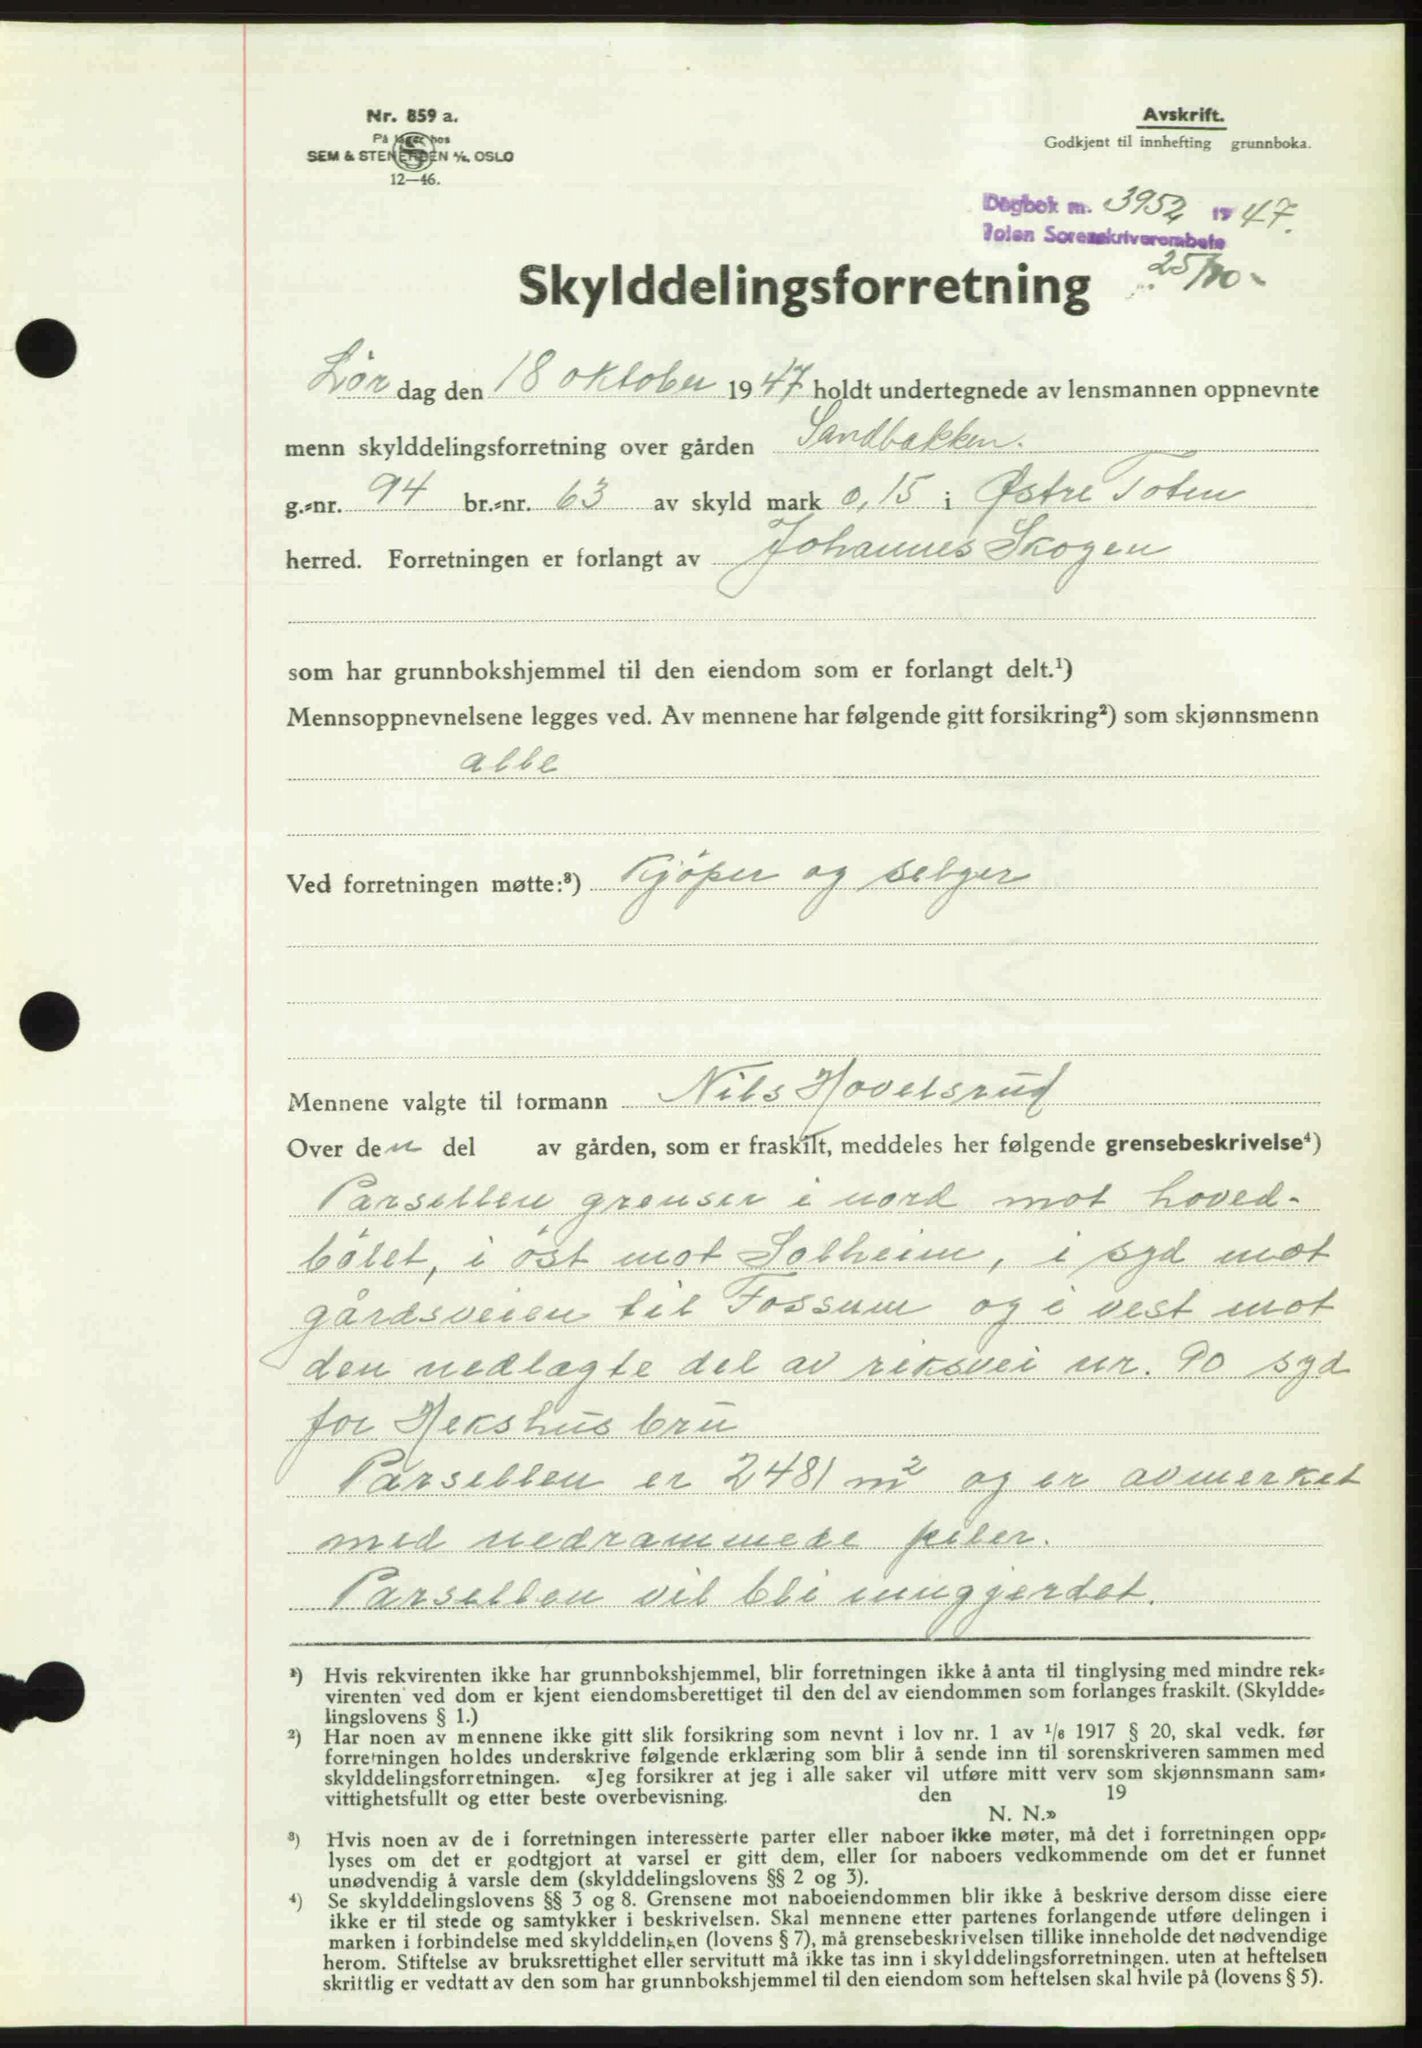 Nr. 859 a.
På lager hos
SEM & STENERSEN A/S. OSLO
12—46.
Avskrift.
Godkjent til innhefting grunnboka.
Dagbok nr. 3952 1947.
Toten Sorenskriverembete
25/10-
Skylddelingsforretning
Lör dag den 18 oktober 1947 holdt undertegnede av lensmannen oppnevnte
menn skylddelingsforretning over gården Sandbakken.
g.=nr. 94 br.=nr. 63 av skyld mark 0,15 i Østre Toten
herred. Forretningen er forlangt av Johannes Skogen
som har grunnbokshjemmel til den eiendom som er forlangt delt.¹)
Mennsoppnevnelsene legges ved. Av mennene har følgende gitt forsikring²) som skjønnsmenn
alle
Ved forretningen møtte:³) Kjöper og selger
Mennene valgte til formann Nils Hovelsrud
Over den del av gården, som er fraskilt, meddeles her følgende grensebeskrivelse⁴)
Parsellen grenser i nord mot hoved-
bölet, i öst mot Solheim, i syd mot
gårdsveien til Fossum og i vest mot
den nedlagte del av riksvei nr. 90 syd
for Hekshus bru
Parsellen er 2481 m² og er avmerket
med nedrammede peler.
Parsellen vil bli inngjerdet.
¹) Hvis rekvirenten ikke har grunnbokshjemmel, blir forretningen ikke å anta til tinglysing med mindre rek=
virenten ved dom er kjent eiendomsberettiget til den del av eiendommen som forlanges fraskilt. (Skyldde=
lingslovens § 1.)
²) Har noen av mennene ikke gitt slik forsikring som nevnt i lov nr. 1 av ¹/₆ 1917 § 20, skal vedk. før
forretningen holdes underskrive følgende erklæring som blir å sende inn til sorenskriveren sammen med
skylddelingsforretningen. «Jeg forsikrer at jeg i alle saker vil utføre mitt verv som skjønnsmann sam=
vittighetsfullt og etter beste overbevisning. den 19
N. N.»
³) Hvis noen av de i forretningen interesserte parter eller naboer ikke møter, må det i forretningen opp=
lyses om det er godtgjort at varsel er gitt dem, eller for naboers vedkommende om det er funnet
unødvendig å varsle dem (skylddelingslovens §§ 2 og 3).
⁴) Se skylddelingslovens §§ 3 og 8. Grensene mot naboeiendommen blir ikke å beskrive dersom disse eiere
ikke er til stede og samtykker i beskrivelsen. Skal mennene etter partenes forlangende utføre delingen i
marken i forbindelse med skylddelingen (lovens § 7), må grensebeskrivelsen tillike inneholde det nødvendige
herom. Stiftelse av bruksrettighet eller servitutt må ikke tas inn i skylddelingsforretningen. uten at heftelsen
skriftlig er vedtatt av den som har grunnbokshjemmel til den eiendom som heftelsen skal hvile på (lovens § 5).